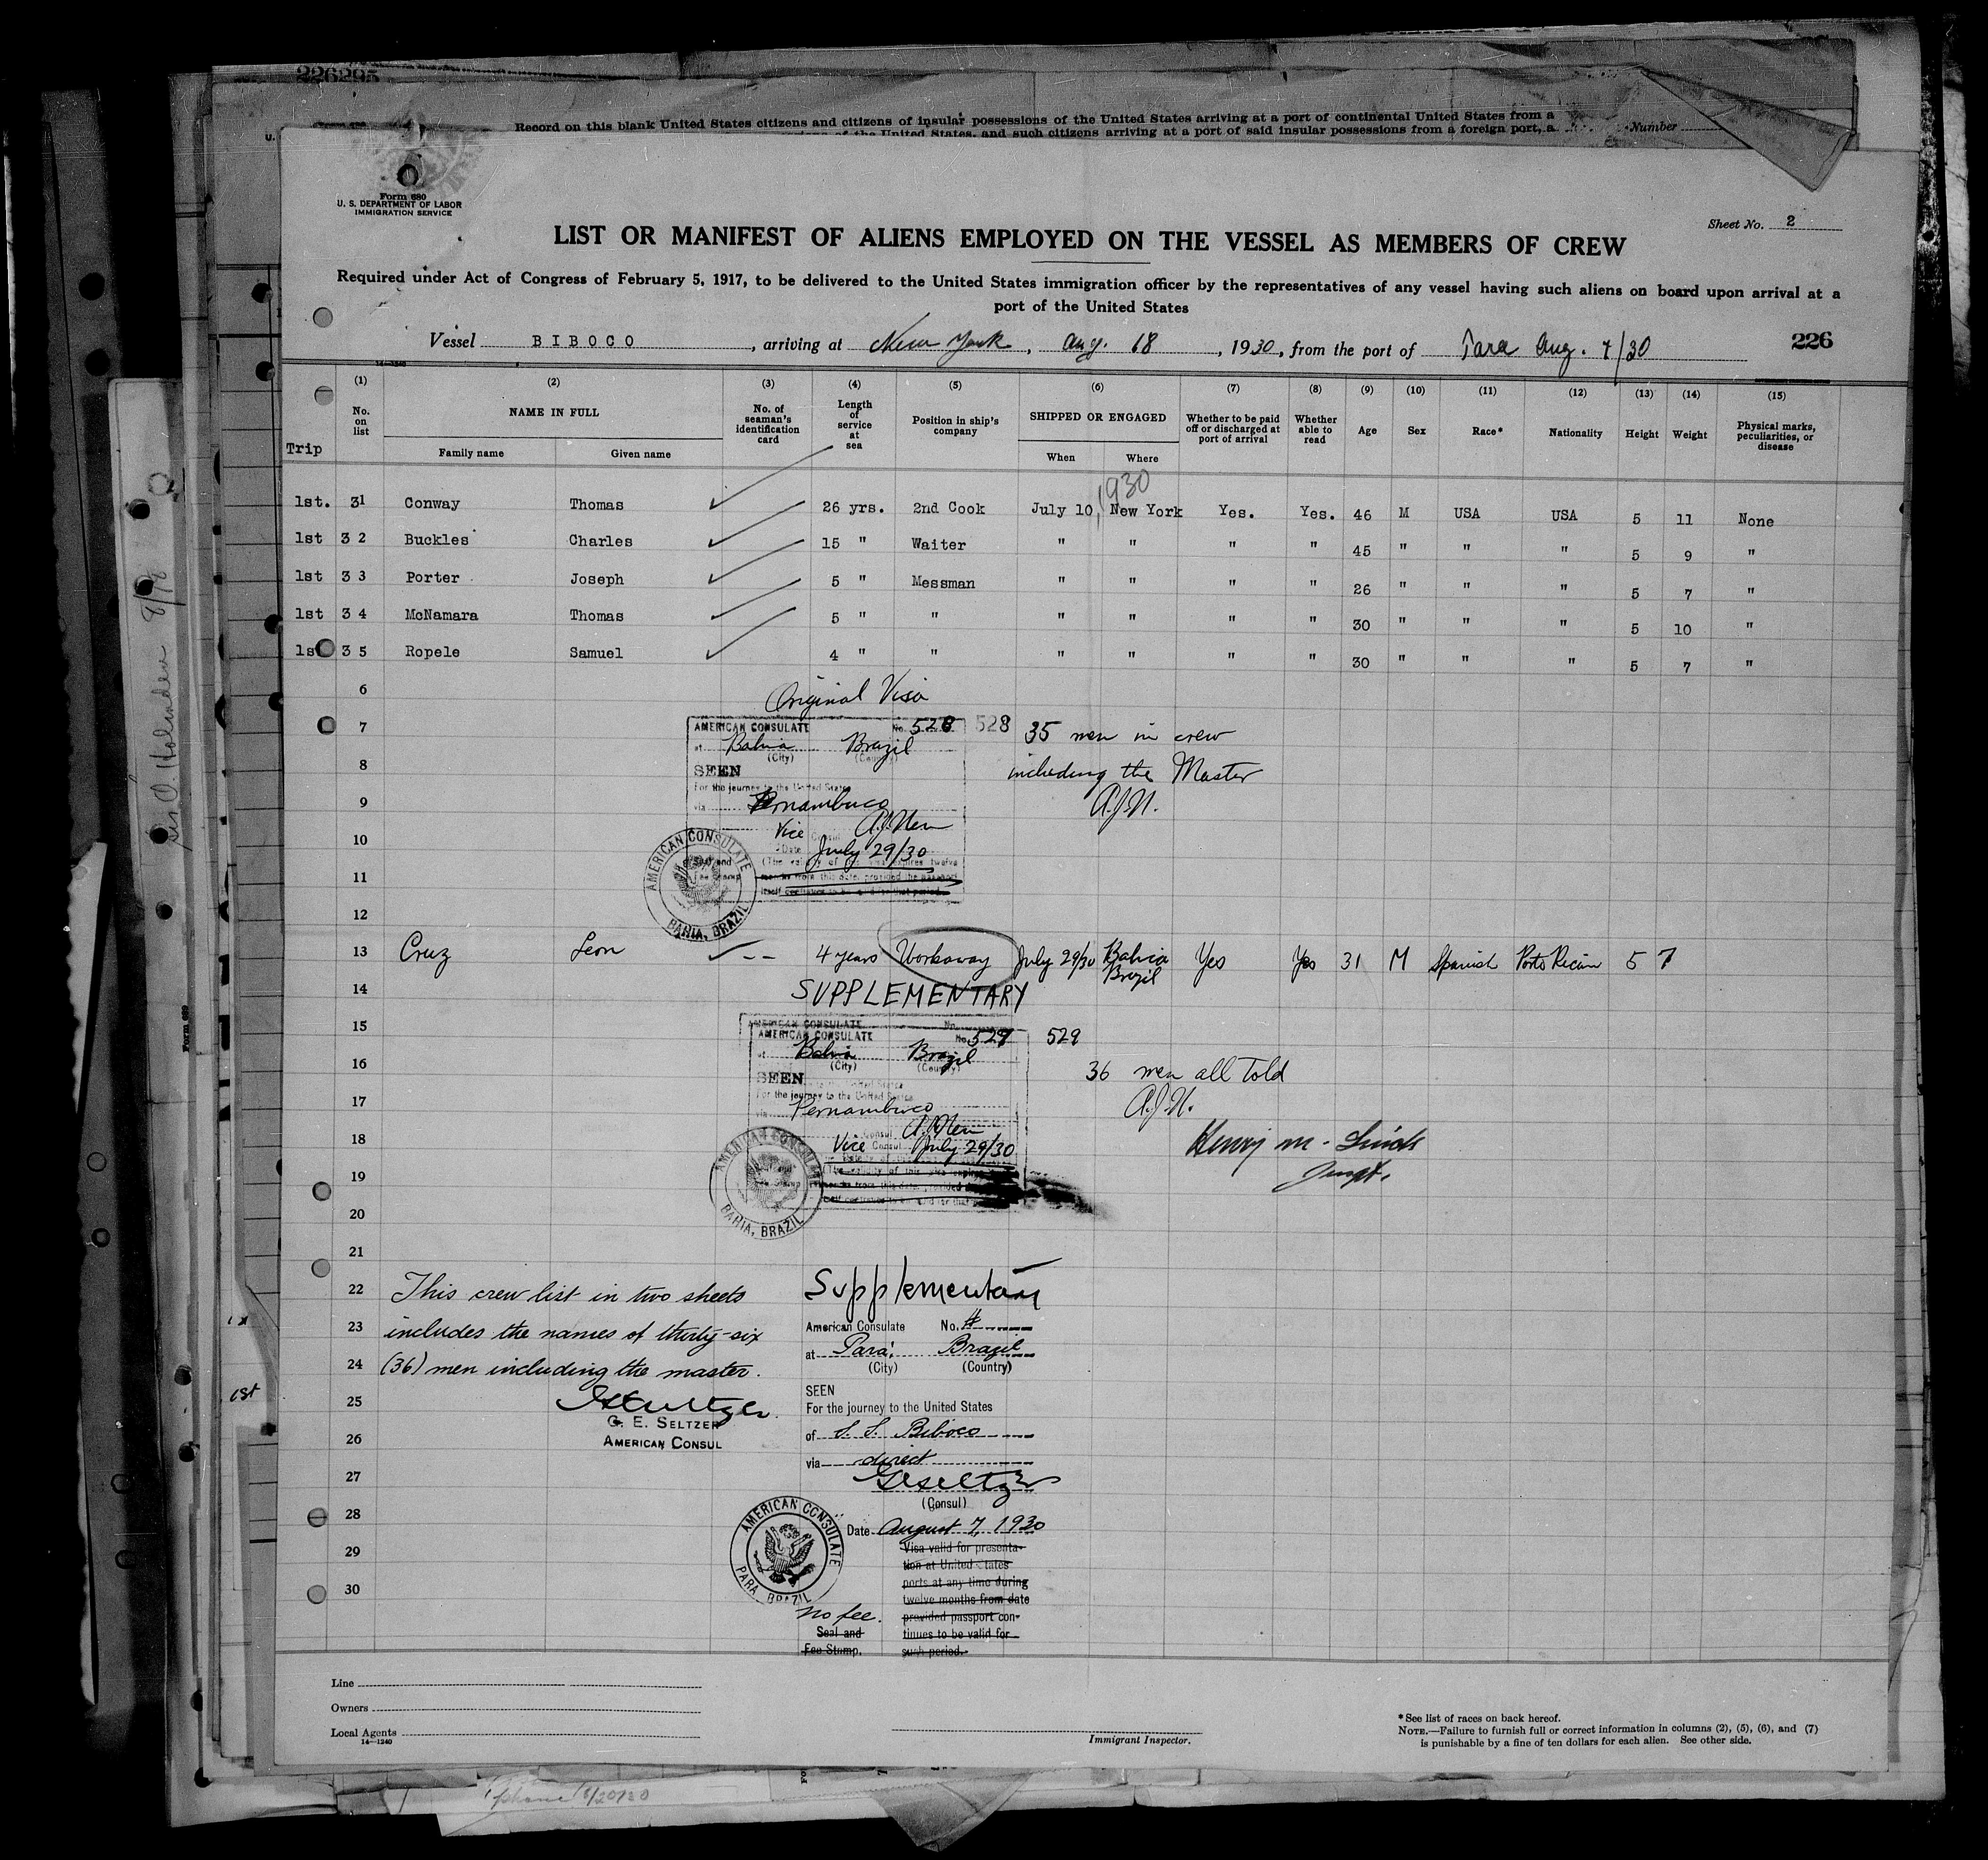 226295
Record on this blank United States citizens and citizens of insular possessions of the United States arriving at a port of continental United States from a
of the United States, and such citizens arriving at a port of said insular possessions from a foreign port, a
Number
Form 680
U. S. DEPARTMENT OF LABOR
IMMIGRATION SERVICE
Sheet No. 2
LIST OR MANIFEST OF ALIENS EMPLOYED ON THE VESSEL AS MEMBERS OF CREW
Required under Act of Congress of February 5, 1917, to be delivered to the United States immigration officer by the representatives of any vessel having such aliens on board upon arrival at a
port of the United States
Vessel BIBOCO, arriving at New York, Aug. 18, 1930, from the port of Para Aug. 7/30
226
14-1240
(1) (2) (3) (4) (5) (6) (7) (8) (9) (10) (11) (12) (13) (14) (15)
Trip No. on list NAME IN FULL Family name Given name No. of seaman's identification card Length of service at sea Position in ship's company SHIPPED OR ENGAGED When Where Whether to be paid off or discharged at port of arrival Whether able to read Age Sex Race* Nationality Height Weight Physical marks, peculiarities, or disease
1930
1st. 31 Conway Thomas 26 yrs. 2nd Cook July 10, New York Yes. Yes. 46 M USA USA 5 11 None
1st 32 Buckles Charles 15 " Waiter " " " " 45 " " " 5 9 "
1st 33 Porter Joseph 5 " Messman " " " " 26 " " " 5 7 "
1st 34 McNamara Thomas 5 " " " " " " 30 " " " 5 10 "
1st 35 Ropele Samuel 4 " " " " " " 30 " " " 5 7 "
6
Original Visa
7
AMERICAN CONSULATE No. 528 528
at Bahia Brazil
(City) (Country)
35 men in crew
8
including the Master
SEEN
For the journey to the United States
9
via Pernambuco
A.J.N.
10
Vice Consul
Date July 29/30
(The validity of this visa expires twelve
months from this date, provided the passport
itself continues to be valid for that period.
AMERICAN CONSULATE
BAHIA, BRAZIL
11
12
13 Cruz Leon -- 4 years Workaway July 29/30 Bahia Brazil Yes Yes 31 M Spanish Porto Rican 5 7
14
SUPPLEMENTARY
15
AMERICAN CONSULATE No.
AMERICAN CONSULATE No. 529 529
at Bahia Brazil
(City) (Country)
16
36 men all told
SEEN
For the journey to the United States
17
via Pernambuco
A.J.N.
18
Vice Consul July 29/30
Henry M.
Inspt.
(The validity of this visa expires
months from this date,
AMERICAN CONSULATE
BAHIA, BRAZIL
19
20
21
22 This crew list in two sheets
23 includes the names of thirty-six
24 (36) men including the master.
25
G. E. SELTZER
AMERICAN CONSUL
26
27
28
29
30
Supplementary
American Consulate No. #
at Para Brazil
(City) (Country)
SEEN
For the journey to the United States
of S. S. Biboco
via direct
GESeltzer
(Consul)
Date August 7, 1930
Visa valid for presenta-
tion at United States
ports at any time during
twelve months from date
provided passport con-
tinues to be valid for
such period.
AMERICAN CONSULATE
PARA BRAZIL
No fee.
Seal and
Fee Stamp.
Line
Owners
Local Agents
14-1240
Immigrant Inspector.
*See list of races on back hereof.
NOTE.—Failure to furnish full or correct information in columns (2), (5), (6), and (7)
is punishable by a fine of ten dollars for each alien. See other side.
1st
Form 689